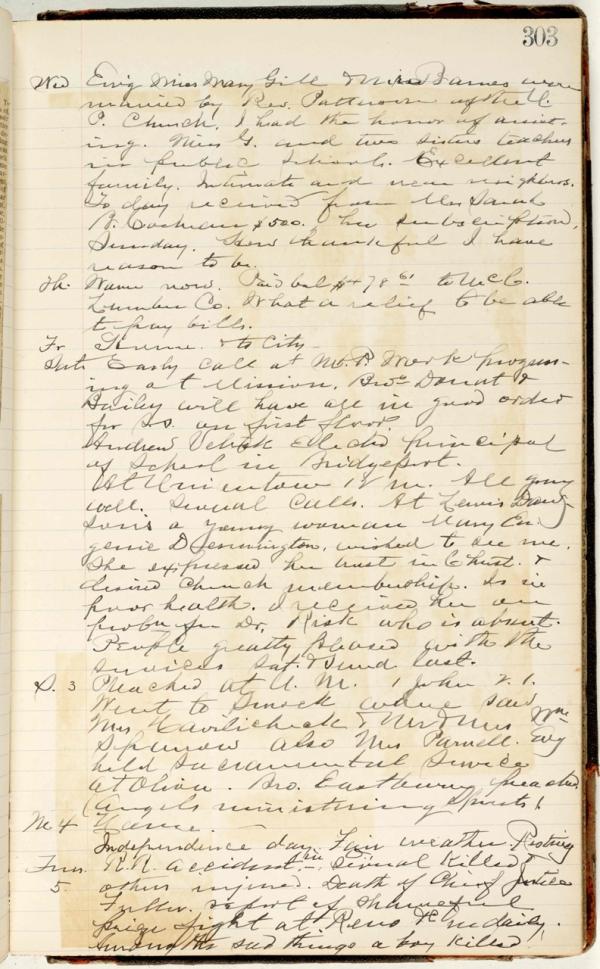 303
Wed Evng Miss Mary Gill & Mr Barnes were
married by Rev. Patterson of the U.
P. Church. I had the honor of assist-
ing. Miss G. and two sisters teachers
in public schools. Excellent
family. Intimate and near neighbors.
To day received from Mrs Sarah
B. Cochran $500. her subscription,
Sunday. How thankful I have
reason to be.
Th. Warm now. Paid bal $478 61 to McC.
Lumber Co. What a relief to be able
to pay bills.
Fr Home. & to City
Sat. Early call at Mt. P. Work progress-
ing at Mission. Bros Donat &
Bailey will have all in good order
for us on first floor.
Andrew elected principal
of School in Bridgeport.
At Uniontown 12 m. All going
well. Several calls. At Lewis Daw-
son's a young woman Mary Eu-
genie Dennington, wished to see me.
She expressed her trust in Christ. &
desired church membership. Is in
poor health. I received her on
proba for Dr. Risk who is absent.
People greatly pleased with the
services Sat. & Sund last.
S. 3 Preached at U. M. 1 John 2. 1.
Went to Smock where saw
Mrs Havilicheck & Mr & Mrs Wm
Sparrow also Mrs Parnell. Evg
held Sacramental Service
at Olive. Bro. Eastburn preached
(Angels ministering spirits)
M 4 Home.
Independence day. Fair weather.
Tues R.R. accident in several killed &
5. others injured. Death of Chief Justice
Fuller. report of shameful
prize fight at Reno
Among the sad things a boy killed